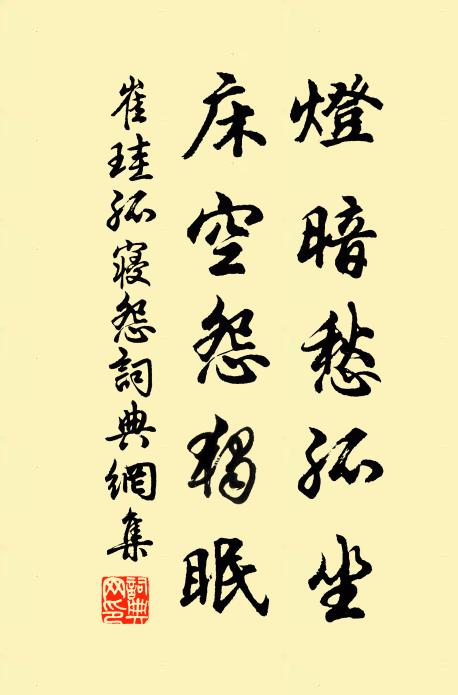 燈暗愁孤坐
床空怨獨眠
崔珪孤寢怨詞典網集
詞典網印